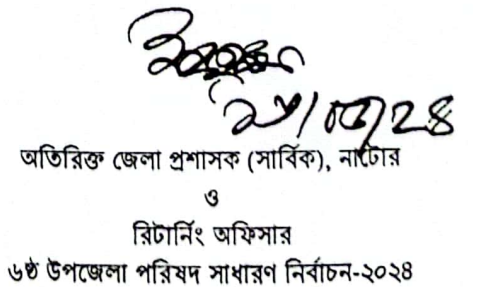 অতিরিক্ত জেলা প্রশাসক (সার্বিক), নাটোর
ও
রিটার্নিং অফিসার
৬ষ্ঠ উপজেলা পরিষদ সাধারণ নির্বাচন-২০২৪